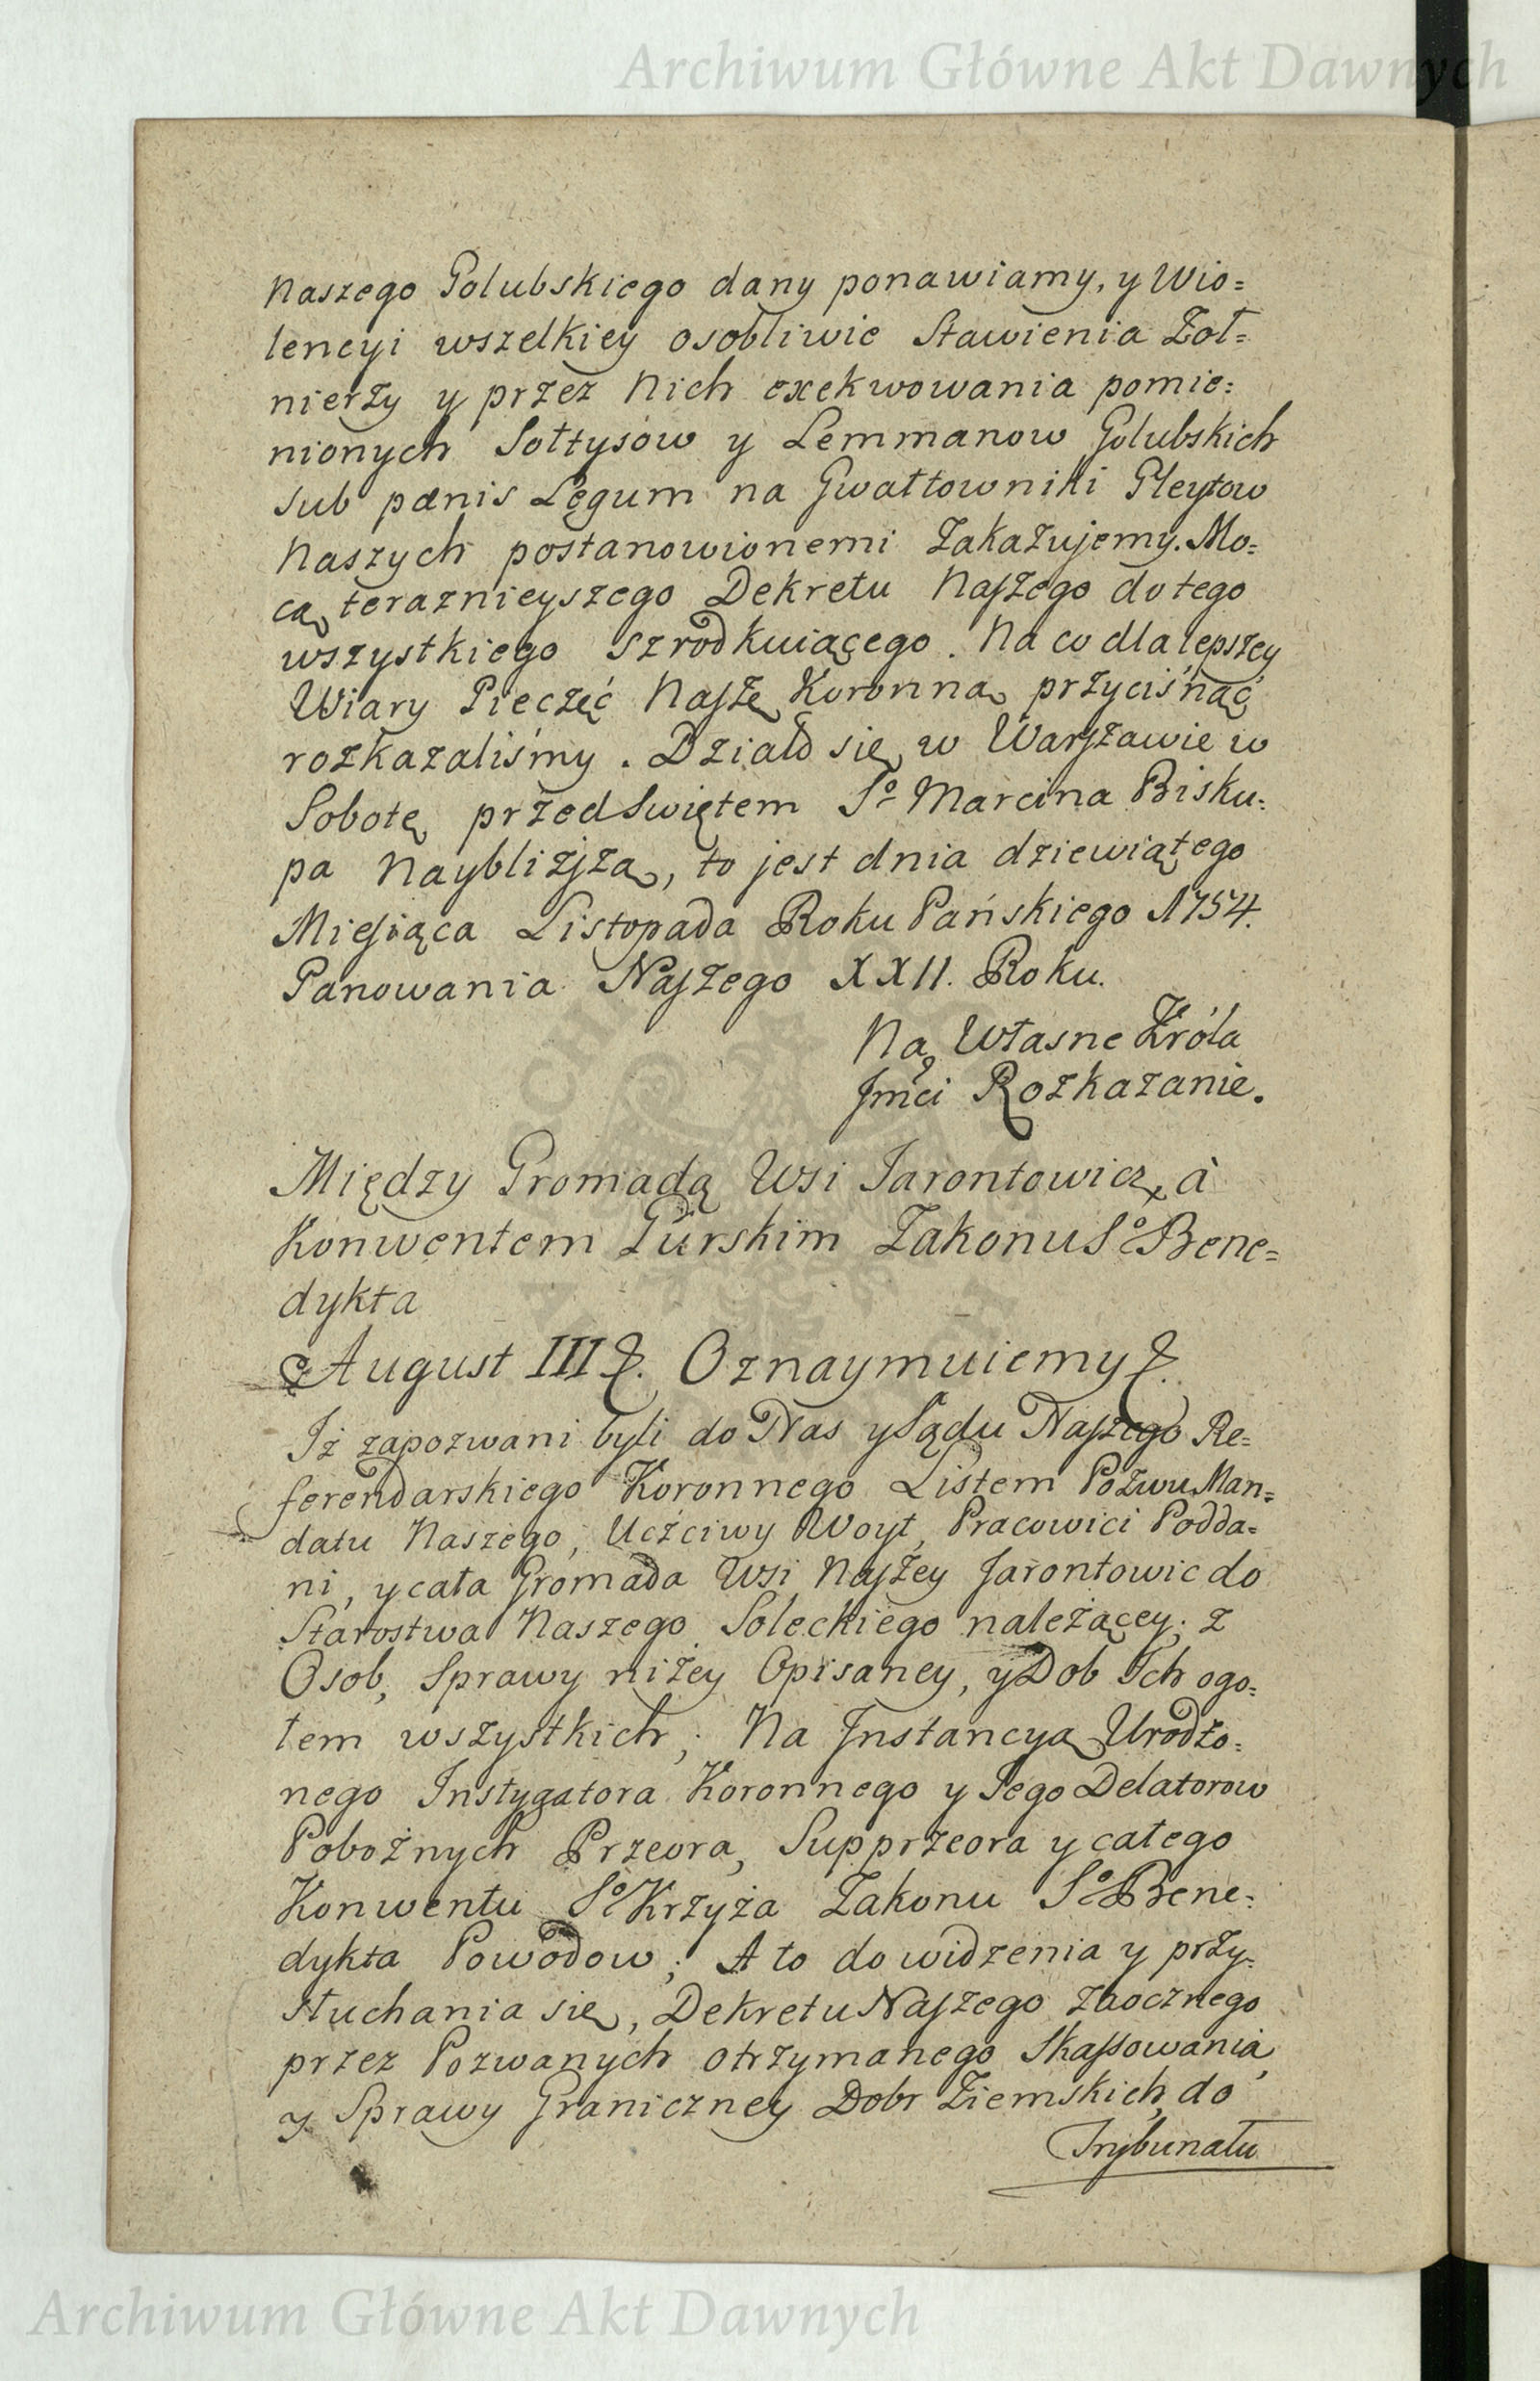 Archiwum Główne Akt Dawnych
Naszego Golubskiego dany ponawiamy, y Wio=
lencyi wszelkiey osobliwie Stawienia Zoł=
nierzy y przez Nich exekwowania pomie=
nionych Sołtysów y Lemmanow Golubskich
sub pœnis Legum na Gwałtowniki Gleytow
Naszych postanowionemi zakazujemy. Mo=
cą teraznieyszego Dekretu Naszego do tego
wszystkiego szrodkuiącego. Na co dla lepszey
Wiary Pieczęć Naszę Koronną przycisnąć
rozkazaliśmy. Działo się w Warszawie w
Sobotę przed Swiętem Sº Marcina Bisku=
pa Naybliższą, to jest dnia dziewiątego
Miesiąca Listopada Roku Pańskiego 1754.
Panowania Naszego XXII. Roku.
Na Własne Króla
Jmci Rozkazanie.
Między Gromadą Wsi Jarontowicz, à
Konwentem Gurskim Zakonu Sº Bene=
dykta
August III &. Oznaymuiemy &.
Iż zapozwani byli do Nas y Sądu Naszego Re=
ferendarskiego Koronnego Listem Pozwu Man=
datu Naszego, Uczciwy Woyt, Pracowici Podda=
ni, y cała Gromada Wsi Naszey Jarontowic do
Starostwa Naszego Soleckiego należącey; z
Osob, Sprawy niżey Opisaney, y Dob Ich ogo=
łem wszystkich; Na Instancyą Urodzo=
nego Instygatora Koronnego y Jego Delatorow
Pobożnych Przeora, Supprzeora y całego
Konwentu Sº Krzyża Zakonu Sº Bene=
dykta Powodow; A to do widzenia y przy=
słuchania się, Dekretu Naszego zaocznego
przez Pozwanych otrzymanego Skassowania,
y Sprawy Graniczney Dobr Ziemskich, do
Trybunału
Archiwum Główne Akt Dawnych